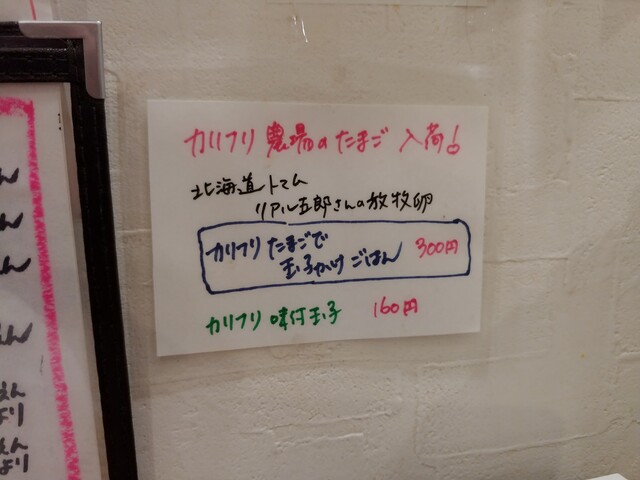 カリフリ 農場のたまご 入荷!
北海道トマム
リアル五郎さんの放牧卵
カリフリ たまごで
玉子かけ ごはん 300円
カリフリ 味付玉子 160円
えん
より
えん
より